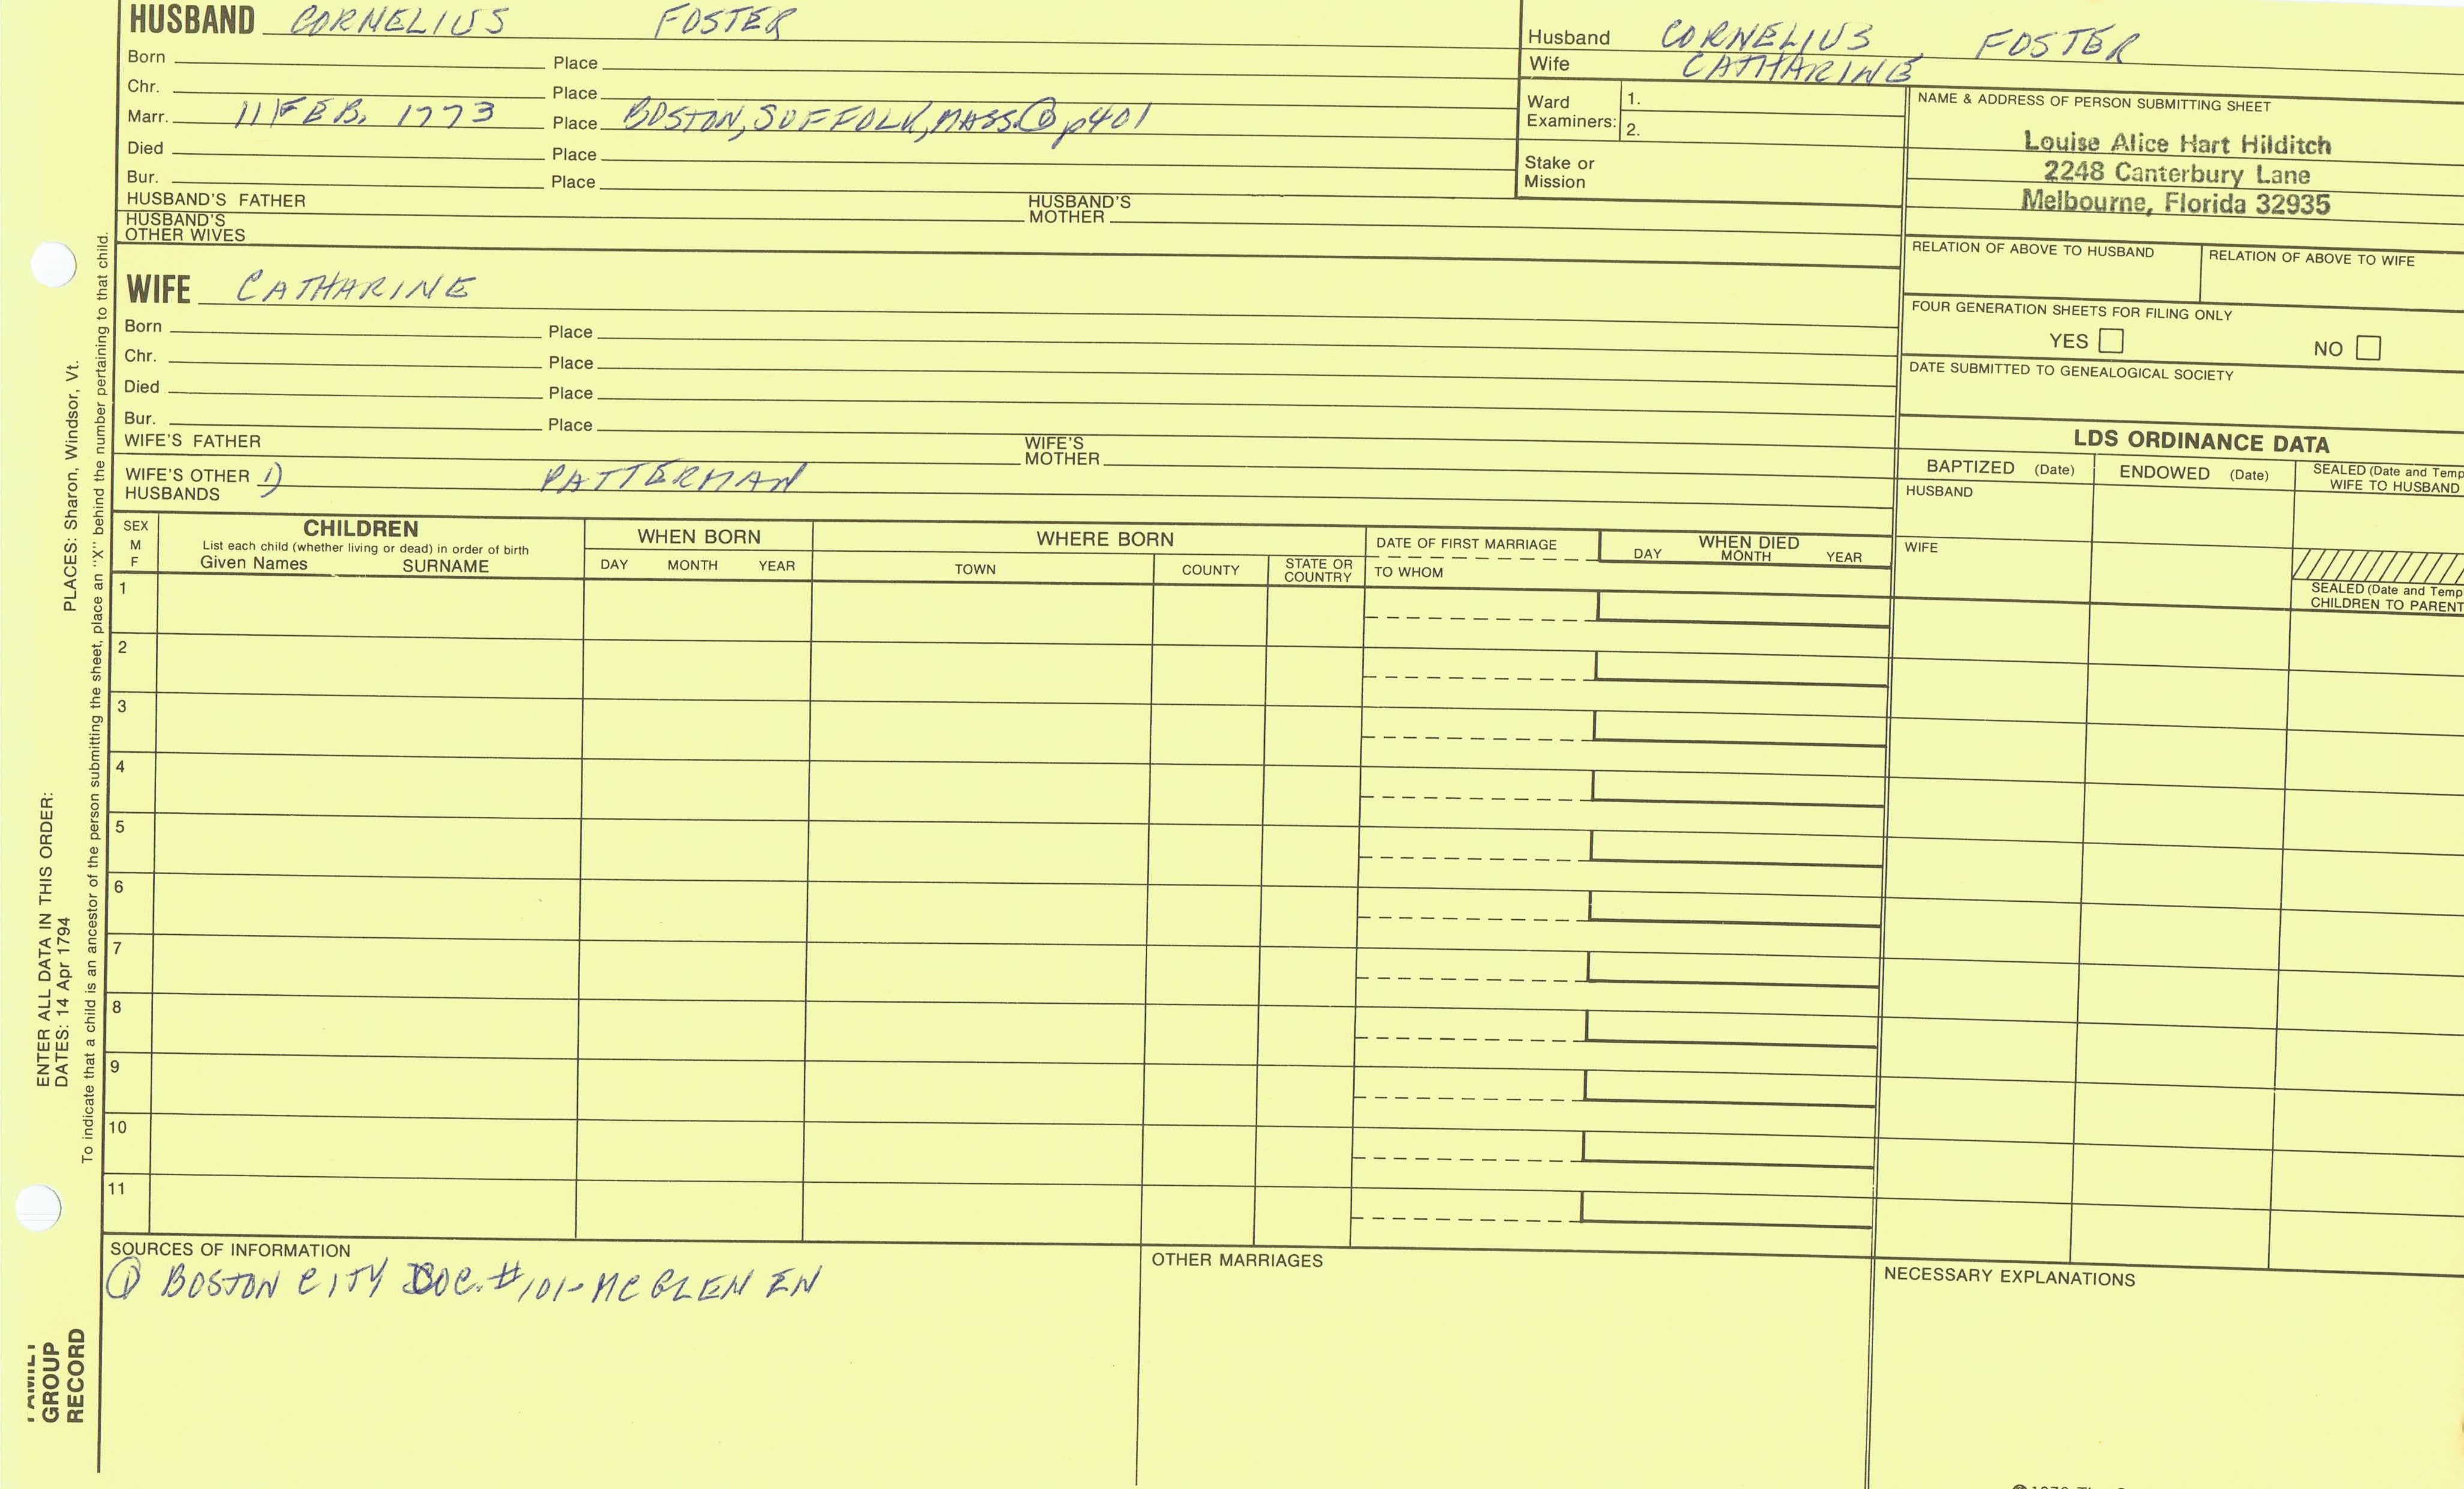 HUSBAND CORNELIUS FOSTER
Born Place
Chr. Place
Marr. 11 FEB. 1773 Place BOSTON, SUFFOLK, MASS. ① p401
Died Place
Bur. Place
HUSBAND'S FATHER HUSBAND'S MOTHER
HUSBAND'S OTHER WIVES
WIFE CATHARINE
Born Place
Chr. Place
Died Place
Bur. Place
WIFE'S FATHER WIFE'S MOTHER
WIFE'S OTHER HUSBANDS 1) PATTERMAN
Husband CORNELIUS FOSTER
Wife CATHARINE
Ward Examiners: 1.
2.
Stake or Mission
NAME & ADDRESS OF PERSON SUBMITTING SHEET
Louise Alice Hart Hilditch
2248 Canterbury Lane
Melbourne, Florida 32935
RELATION OF ABOVE TO HUSBAND RELATION OF ABOVE TO WIFE
FOUR GENERATION SHEETS FOR FILING ONLY
YES NO
DATE SUBMITTED TO GENEALOGICAL SOCIETY
LDS ORDINANCE DATA
BAPTIZED (Date) ENDOWED (Date) SEALED (Date and Temp
WIFE TO HUSBAND
HUSBAND
WIFE
SEALED (Date and Temp
CHILDREN TO PARENT
SEX M F
CHILDREN
List each child (whether living or dead) in order of birth
Given Names SURNAME
WHEN BORN
DAY MONTH YEAR
WHERE BORN
TOWN COUNTY STATE OR COUNTRY
DATE OF FIRST MARRIAGE
TO WHOM
WHEN DIED
DAY MONTH YEAR
1
2
3
4
5
6
7
8
9
10
11
SOURCES OF INFORMATION
① BOSTON CITY DOC. #101-MC GLEN EN
OTHER MARRIAGES
NECESSARY EXPLANATIONS
PLACES: Sharon, Windsor, Vt.
ENTER ALL DATA IN THIS ORDER:
DATES: 14 Apr 1794
To indicate that a child is an ancestor of the person submitting the sheet, place an "X" behind the number pertaining to that child.
FAMILY
GROUP
RECORD